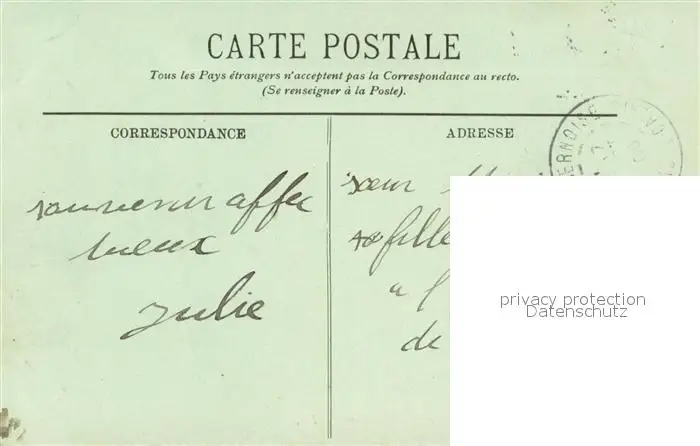 CARTE POSTALE
Tous les Pays étrangers n'acceptent pas la Correspondance au recto.
(Se renseigner à la Poste).
CORRESPONDANCE
ADRESSE
souvenir affec
tueux
Julie
sœur
fille
a l
de
privacy protection
Datenschutz